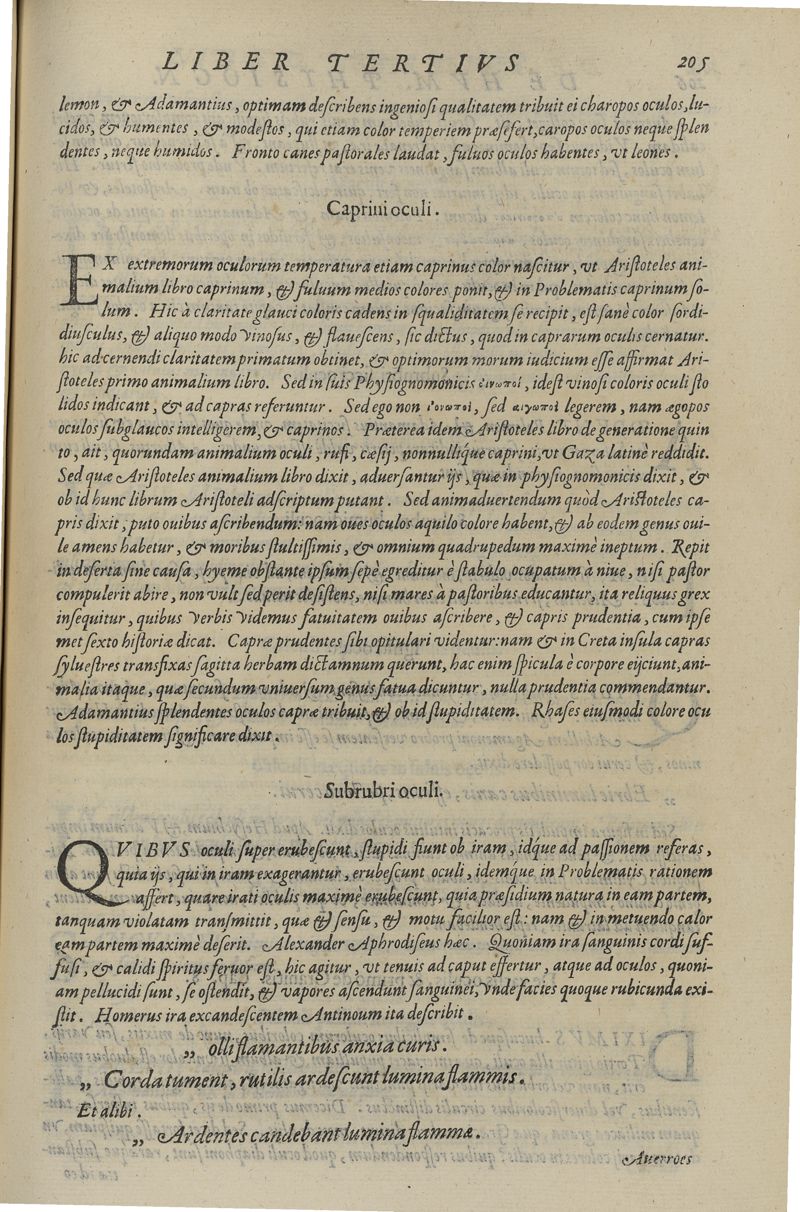 LIBER TERTIVS 205
lemon, & Adamantius, optimam deſcribens ingenioſi qualitatem tribuit ei charopos oculos, lu-
cidos, & humentes, & modeſtos, qui etiam color temperiem præſefert, caropos oculos neque ſplen
dentes, neque humidos. Fronto canes paſtorales laudat, fuluos oculos habentes, vt leones.
Caprini oculi.
EX extremorum oculorum temperatura etiam caprinus color naſcitur, vt Ariſtoteles ani-
malium libro caprinum, & fuluum medios colores ponit, & in Problematis caprinum ſo-
lum. Hic à claritate glauci coloris cadens in ſqualiditatem ſe recipit, eſt ſanè color ſordi-
diuſculus, & aliquo modo vinoſus, & flaueſcens, ſic dictus, quod in caprarum oculis cernatur.
hic ad cernendi claritatem primatum obtinet, & optimorum morum iudicium eſſe affirmat Ari-
ſtoteles primo animalium libro. Sed in ſuis Phyſiognomonicis ὀινωποὶ, ideſt vinoſi coloris oculi ſto
lidos indicant, & ad capras referuntur. Sed ego non ὀινωποὶ, ſed αιγωποὶ legerem, nam ægopos
oculos ſubglaucos intelligerem, & caprinos. Præterea idem Ariſtoteles libro de generatione quin
to, ait, quorundam animalium oculi, rufi, cæſij, nonnullique caprini, vt Gaza latinè reddidit.
Sed quæ Ariſtoteles animalium libro dixit, aduerſantur ijs, quæ in phyſiognomonicis dixit, &
ob id hunc librum Ariſtoteli adſcriptum putant. Sed animaduertendum quòd Ariſtoteles ca-
pris dixit, puto ouibus aſcribendum: nam oues oculos aquilo colore habent, & ab eodem genus oui-
le amens habetur, & moribus ſtultiſſimis, & omnium quadrupedum maximè ineptum. Repit
in deſerta ſine cauſa, hyeme obſtante ipſum ſepè egreditur è ſtabulo, ocupatum à niue, niſi paſtor
compulerit abire, non vult ſed perit deſiſtens, niſi mares à paſtoribus educantur, ita reliquus grex
inſequitur, quibus verbis videmus fatuitatem ouibus aſcribere, & capris prudentia, cum ipſe
met ſexto hiſtoriæ dicat. Capræ prudentes ſibi opitulari videntur: nam & in Creta inſula capras
ſylueſtres transfixas ſagitta herbam dictamnum querunt, hac enim ſpicula è corpore eijciunt, ani-
malia itaque, quæ ſecundum vniuerſum genus fatua dicuntur, nulla prudentia commendantur.
Adamantius ſplendentes oculos capræ tribuit, & ob id ſtupiditatem. Rhaſes eiuſmodi colore ocu
los ſtupiditatem ſignificare dixit.
Subrubri oculi.
QVIBVS oculi ſuper erubeſcunt, ſtupidi fiunt ob iram, idq́ue ad paſſionem referas,
quia ijs, qui in iram exagerantur, erubeſcunt oculi, idemque in Problematis rationem
affert, quare irati oculis maximè erubeſcunt, quia præſidium natura in eam partem,
tanquam violatam tranſmittit, quæ & ſenſu, & motu facilior eſt: nam & in metuendo calor
eam partem maximè deſerit. Alexander Aphrodiſeus hæc. Quoniam ira ſanguinis cordi ſuf-
fuſi, & calidi ſpiritus feruor eſt, hic agitur, vt tenuis ad caput effertur, atque ad oculos, quoni-
am pellucidi ſunt, ſe oſtendit, & vapores aſcendunt ſanguinei, vnde facies quoque rubicunda exi-
ſtit. Homerus ira excandeſcentem Antinoum ita deſcribit.
„ olli flamantibus anxia curis.
„ Corda tument, rutilis ardeſcunt lumina flammis.
Et alibi.
„ Ardentes candebant lumina flammæ.
Auerroes